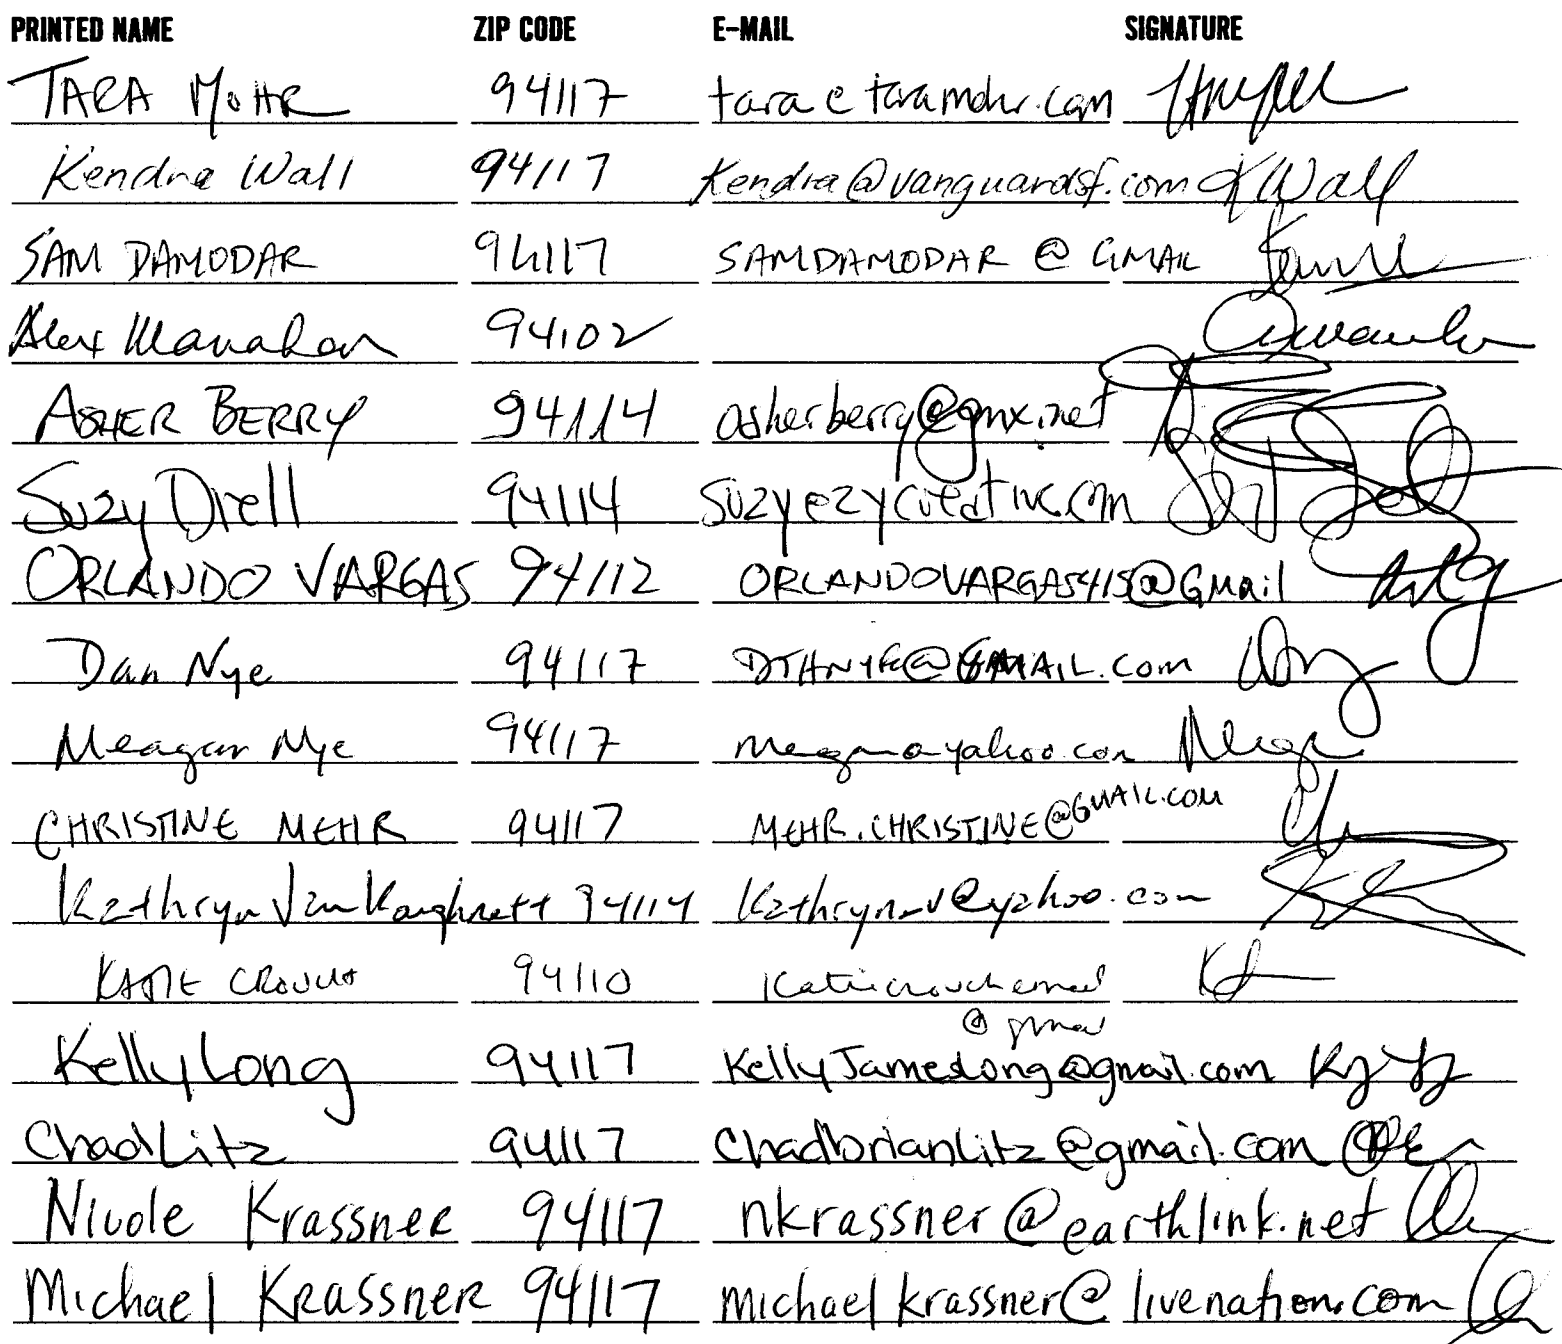 PRINTED NAME ZIP CODE E-MAIL SIGNATURE
TARA MOHR 94117 tara@taramohr.com
Kendra Wall 94117 Kendra@vanguardsf.com KWall
SAM DAMODAR 94117 SAMDAMODAR @ GMAIL
Alex Manahan 94102
ASHER BERRY 94114 asherberry@gmx.net
Suzy Drell 94114 suzy@zycreative.com
ORLANDO VARGAS 94112 ORLANDOVARGAS415@GMail
Dan Nye 94117 DTHNYE@GMAIL.com
Meagan Nye 94117 yahoo.com
CHRISTINE MEHR 94117 MEHR.CHRISTINE@GMAIL.COM
Kathryn Van Kaughnett 94114 Kathryn_v@yahoo.com
KATIE CROUCH 94110 Katiecrouchemail
@gmail
Kelly Long 94117 KellyJamesLong@gmail.com
Chad Litz 94117 Chadbrianlitz@gmail.com
Nicole Krassner 94117 nkrassner@earthlink.net
Michael Krassner 94117 michaelkrassner@livenation.com